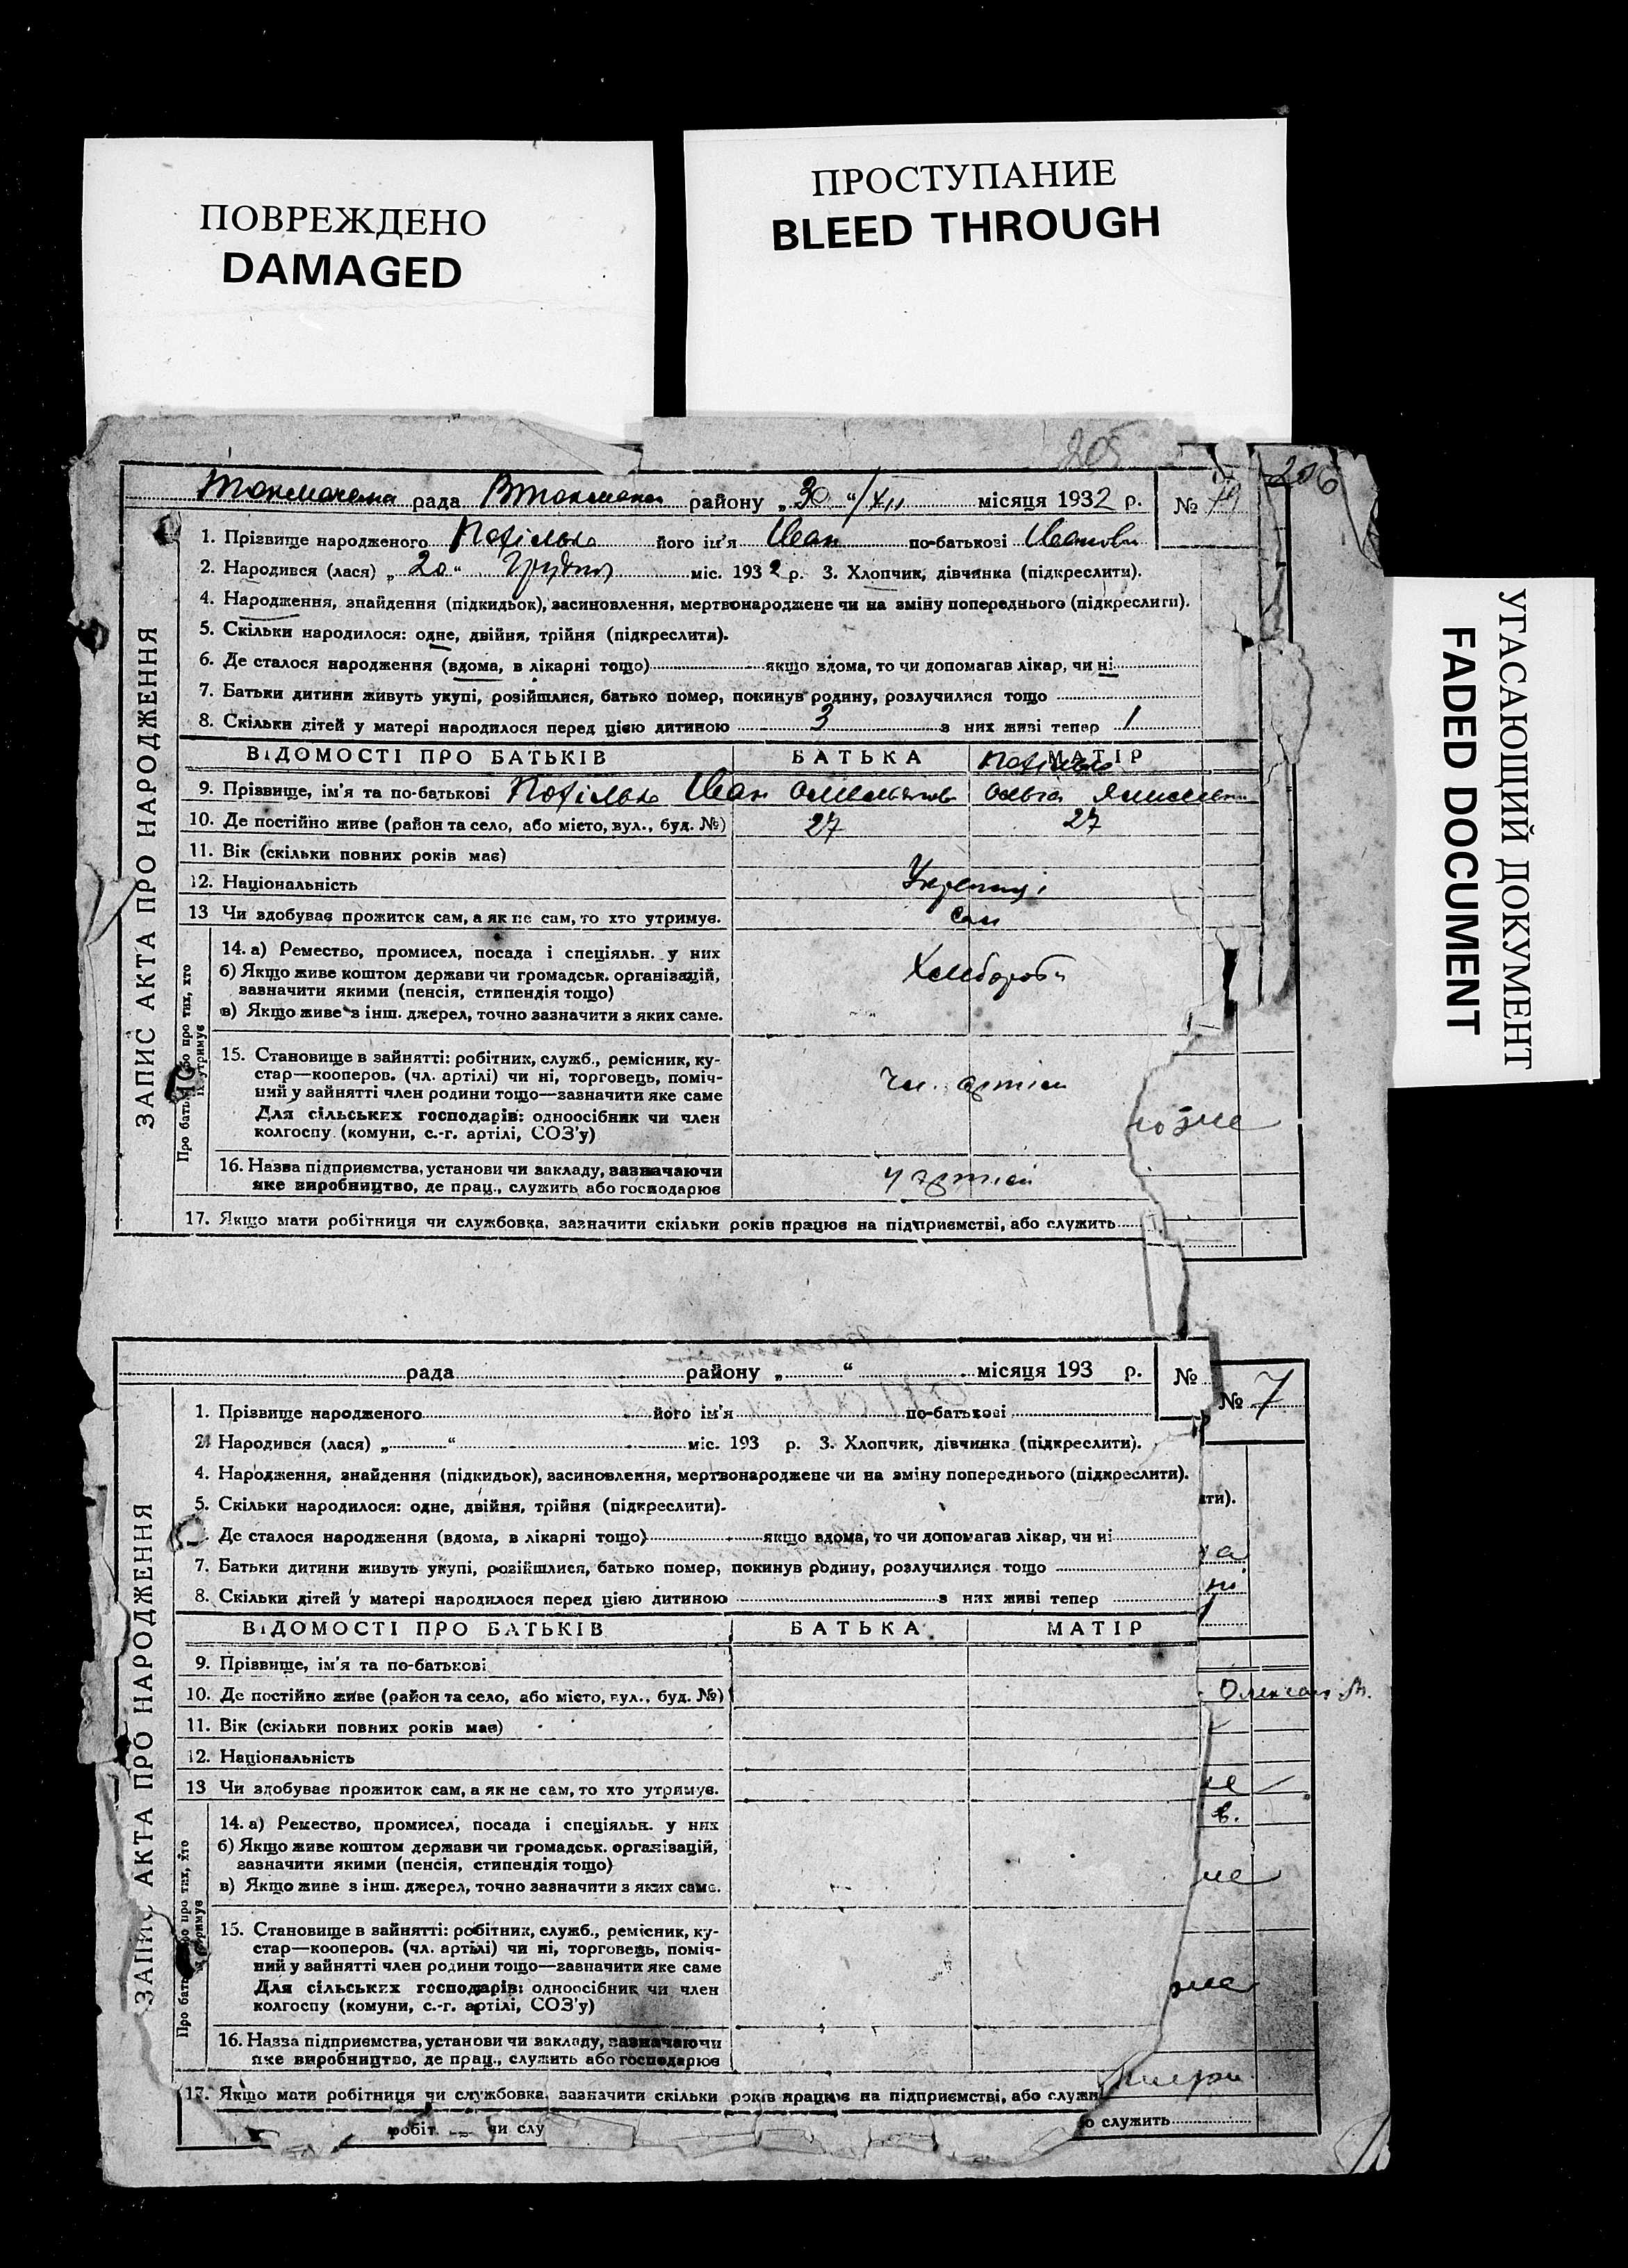 ПОВРЕЖДЕНО
DAMAGED
ПРОСТУПАНИЕ
BLEED THROUGH
УГАСАЮЩИЙ ДОКУМЕНТ
FADED DOCUMENT
205
206
рада району „30“/XII місяця 1932 р. №
ЗАПИС АКТА ПРО НАРОДЖЕННЯ
1. Прізвище народженого його ім'я Иван по-батькові
2. Народився (лася) „20“ Грудня міс. 1932 р. 3. Хлопчик, дівчинка (підкреслити).
4. Народження, знайдення (підкидьок), засиновлення, мертвонароджене чи на зміну попереднього (підкреслити).
5. Скільки народилося: одне, двійня, трійня (підкреслити).
6. Де сталося народження (вдома, в лікарні тощо) якщо вдома, то чи допомагав лікар, чи ні
7. Батьки дитини живуть укупі, розійшлися, батько помер, покинув родину, розлучилися тощо
8. Скільки дітей у матері народилося перед цією дитиною 3 з них живі тепер 1
ВІДОМОСТІ ПРО БАТЬКІВ БАТЬКА МАТІР
9. Прізвище, ім'я та по-батькові Иван
10. Де постійно живе (район та село, або місто, вул., буд. №) 27 27
11. Вік (скільки повних років має)
12. Національність Українці
13 Чи здобуває прожиток сам, а як не сам, то хто утримує. сам
Про батьків або про тих, хто їх утримує
14. а) Ремество, промисел, посада і спеціяльн. у них
б) Якщо живе коштом держави чи громадськ. організацій,
зазначити якими (пенсія, стипендія тощо)
в) Якщо живе з інш. джерел, точно зазначити з яких саме.
Хлібороби
15. Становище в зайнятті: робітник, служб., ремісник, ку-
стар—кооперов. (чл. артілі) чи ні, торговець, поміч-
ний у зайнятті член родини тощо—зазначити яке саме
Для сільських господарів: одноосібник чи член
колгоспу (комуни, с.-г. артілі, СОЗ'у)
чл. артіли
16. Назва підприємства, установи чи закладу, зазначаючи
яке виробництво, де прац., служить або господарює
у артілі
17. Якщо мати робітниця чи службовка, зазначити скільки років працює на підприємстві, або служить
рада району „ “ місяця 193 р. №
№ 7
ЗАПИС АКТА ПРО НАРОДЖЕННЯ
1. Прізвище народженого його ім'я по-батькові
2. Народився (лася) „ “ міс. 193 р. 3. Хлопчик, дівчинка (підкреслити).
4. Народження, знайдення (підкидьок), засиновлення, мертвонароджене чи на зміну попереднього (підкреслити).
5. Скільки народилося: одне, двійня, трійня (підкреслити).
ити).
Де сталося народження (вдома, в лікарні тощо) якщо вдома, то чи допомагав лікар, чи ні
7. Батьки дитини живуть укупі, розійшлися, батько помер, покинув родину, розлучилися тощо
8. Скільки дітей у матері народилося перед цією дитиною з них живі тепер
ВІДОМОСТІ ПРО БАТЬКІВ БАТЬКА МАТІР
9. Прізвище, ім'я та по-батькові
10. Де постійно живе (район та село, або місто, вул., буд. №)
11. Вік (скільки повних років має)
12. Національність
13 Чи здобуває прожиток сам, а як не сам, то хто утримує.
14. а) Ремество, промисел, посада і спеціяльн. у них
б) Якщо живе коштом держави чи громадськ. організацій,
зазначити якими (пенсія, стипендія тощо)
в) Якщо живе з інш. джерел, точно зазначити з яких саме.
15. Становище в зайнятті: робітник, служб., ремісник, ку-
стар—кооперов. (чл. артілі) чи ні, торговець, поміч-
ний у зайнятті член родини тощо—зазначити яке саме
Для сільських господарів: одноосібник чи член
колгоспу (комуни, с.-г. артілі, СОЗ'у)
16. Назва підприємства, установи чи закладу, зазначаючи
яке виробництво, де прац., служить або господарює
17. Якщо мати робітниця чи службовка, зазначити скільки років працює на підприємстві, або служи
робіт чи слу
о служить